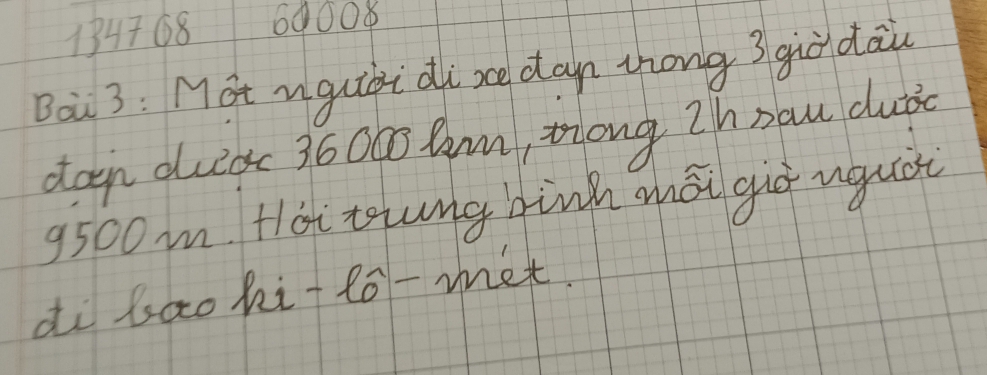 134768 60008
Bài 3: Một người đi xe đạp trong 3 giờ đầu
đạp được 36000 km, trong 2h sau được
9500 m. Hỏi trung bình mỗi giờ người
đi bao ki-lô-mét.